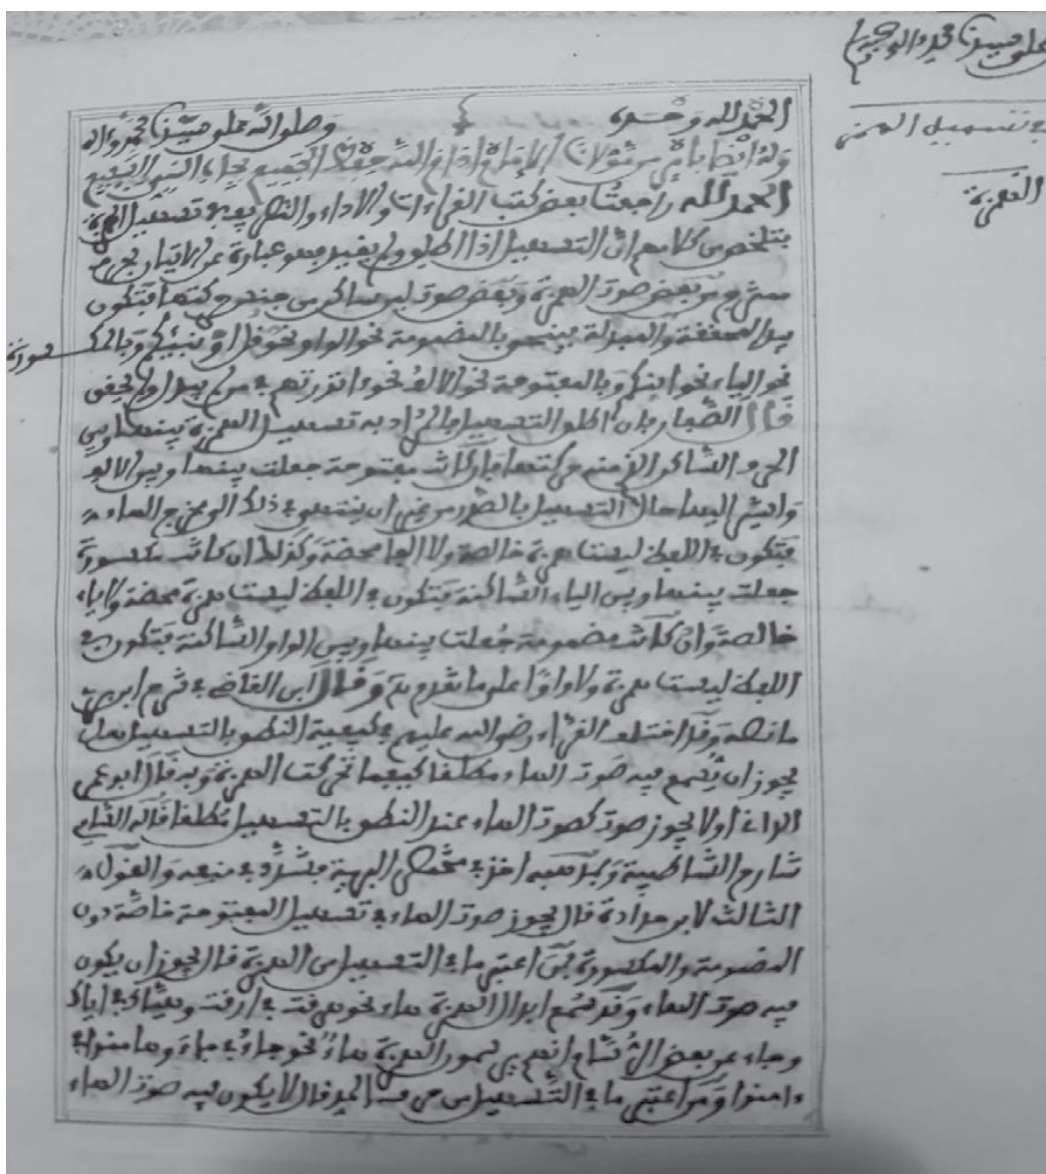 على سيدنا محمد واله وصحبه
في تسهيل الهمز
الهمزة
الحمد لله وحده وصلى الله على سيدنا محمد واله
وله ايضا
الحمد لله راجعت بعض كتب القراءات والاداء والتصريف في تسهيل الهمزة
فتلخص من كلامهم ان التسهيل اذا اطلق ولم يقيد فهو عبارة عن الاتيان بحرف
بعض صوت الهمزة وبعض صوت ليس ساكن من جنس حركتها فتكون
بين المحققة والمبدلة فينحو بالمضمومة نحو الواو نحو قل اؤنبئكم وبالمكسورة
نحو الياء نحو اينكم وبالمفتوحة نحو الالف نحو ءانذرتهم في من لم يبدل ولم يحقق
قال الصفار فان اطلق التسهيل فالمراد به تسهيل الهمزة بينها وبين
الحرف الساكن الذي منه حركتها فان كانت مفتوحة جعلت بينها وبين الالف
حال التسهيل بالصدر من غير ان ينتهي في ذلك الى مخرج الهاء
فتكون في اللفظ ليست همزة خالصة ولا الفا محضة وكذلك ان كانت مكسورة
جعلت بينها وبين الياء الساكنة فتكون في اللفظ ليست همزة محضة ولا ياء
خالصة وان كانت مضمومة جعلت بينها وبين الواو الساكنة فتكون في
اللفظ ليست همزة ولا واوا على ما تقدم وقال ابن القاضي في شرح ابن بري
ما نصه وقد اختلف القراء رضى الله عليهم في كيفية النطق بالتسهيل هل
يجوز ان يسمع فيه صوت الهاء مطلقا كيفما تحركت الهمزة وبه قال ابو عمرو
الداني او لا يجوز صوت كصوت الهاء عند النطق بالتسهيل مطلقا قاله
شارح الشاطبية والقول
الثالث لابن حدادة قال يجوز صوت الهاء في تسهيل المفتوحة خاصة دون
المضمومة والمكسورة فمن اعتبر ما في التسهيل من الهمزة قال يجوز ان يكون
فيه صوت الهاء وقد سمع ابدال الهمزة هاء نحو هرقت في ارقت وهياك في اياك
وجاء عن بعض العرب انهم يبدلون الهمزة هاء نحو جاء
ءامنوا ومن اعتبر ما في التسهيل من حرف المد قال لا يكون فيه صوت الهاء